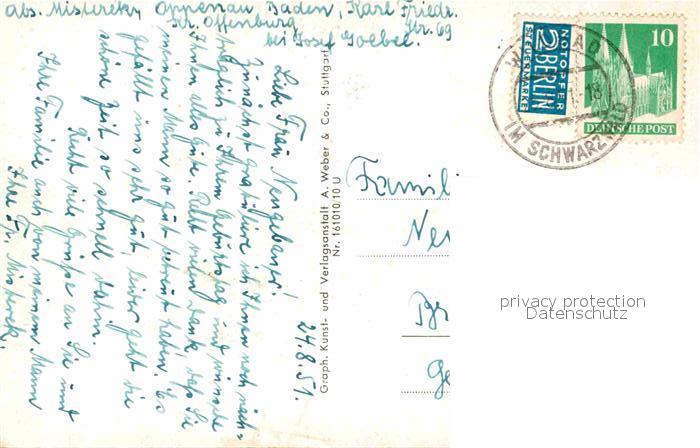 abs. Misterek, Oppenau, Baden, Karl Friedr.
Kr. Offenburg Str. 69
bei Josef Goebel.
24.8.51.
Liebe Frau Neugebauer!
Zunächst gratuliere ich Ihnen noch nach-
träglich zu Ihrem Geburtstag und wünsche
Ihnen alles Gute. Recht vielen Dank, daß Sie
meinen Mann so gut betreut haben. Es
gefällt uns sehr gut, leider geht die
schöne Zeit so schnell dahin.
Recht viele Grüße an Sie und
Ihre Familie auch von meinem Mann
Ihre Fr. Misterek.
Graph. Kunst- und Verlagsanstalt A. Weber & Co., Stuttgart
Nr. 161010/10 U
NOTOPFER
2 BERLIN
STEUERMARKE
10
DEUTSCHE POST
BAD
18
IM SCHWARZWALD
Famil
Neu
Br
Ge
privacy protection
Datenschutz